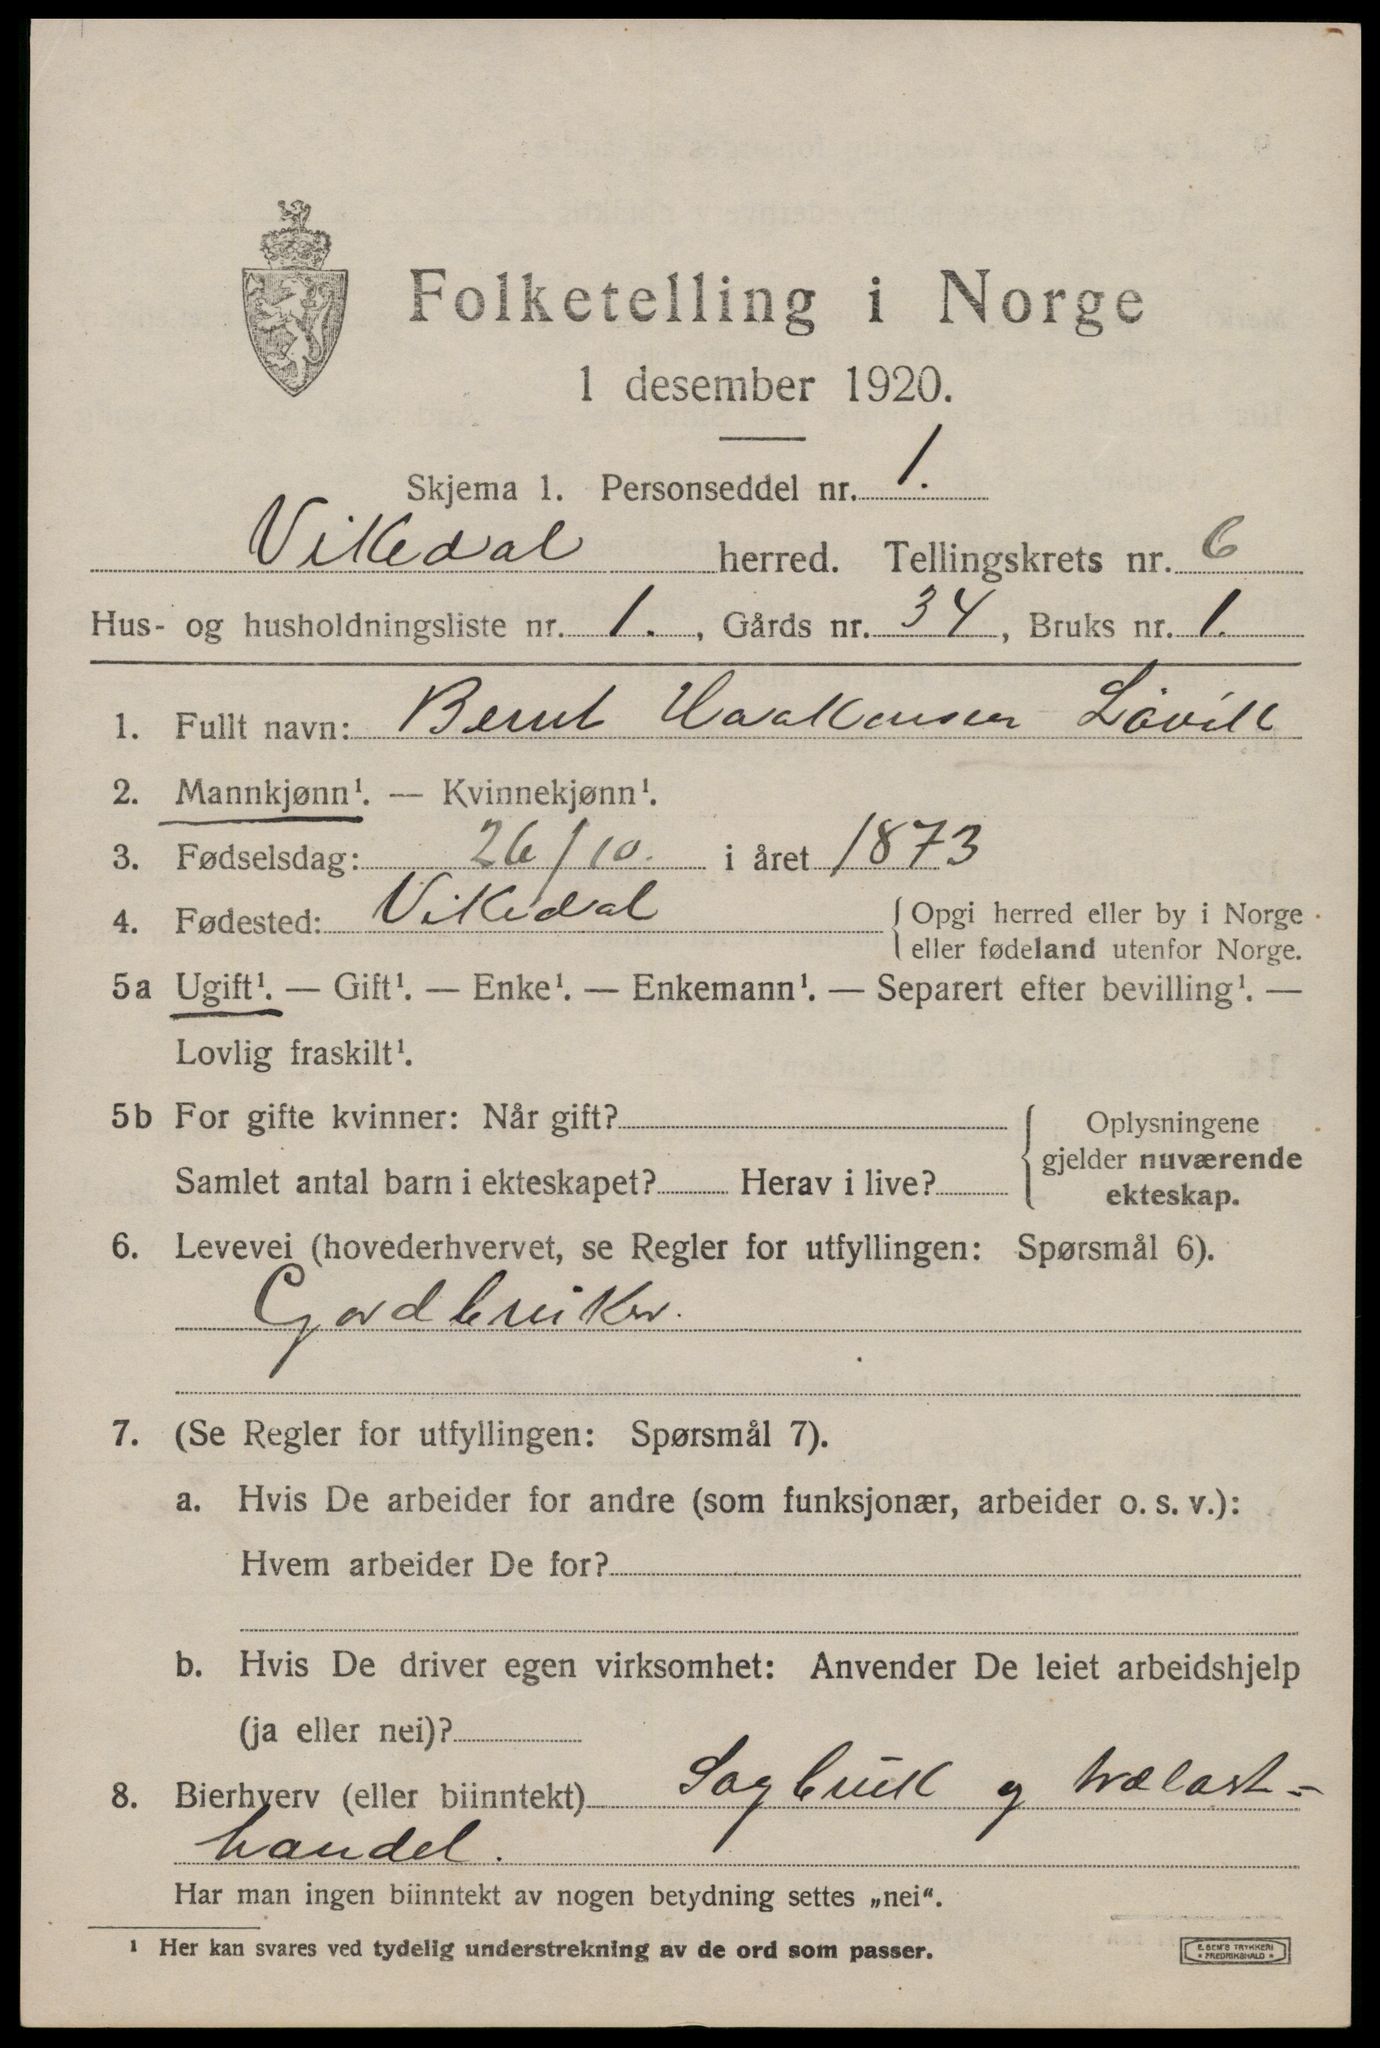 Folketelling i Norge
1 desember 1920.
Skjema 1. Personseddel nr. 1.
Vikedal herred. Tellingskrets nr. 6
Hus- og husholdningsliste nr. 1., Gårds nr. 34, Bruks nr. 1.
1. Fullt navn: Bernt Haakensen Løvik
2. Mannkjønn¹. — Kvinnekjønn¹.
3. Fødselsdag: 26/10. i året 1873
4. Fødested: Vikedal { Opgi herred eller by i Norge
eller fødeland utenfor Norge.
5a Ugift¹. — Gift¹. — Enke¹. — Enkemann¹. — Separert efter bevilling¹. —
Lovlig fraskilt¹.
5b For gifte kvinner: Når gift? { Oplysningene
gjelder nuværende
Samlet antal barn i ekteskapet? Herav i live? ekteskap.
6. Levevei (hovederhvervet, se Regler for utfyllingen: Spørsmål 6).
Gardbruker.
7. (Se Regler for utfyllingen: Spørsmål 7).
a. Hvis De arbeider for andre (som funksjonær, arbeider o. s. v.):
Hvem arbeider De for?
b. Hvis De driver egen virksomhet: Anvender De leiet arbeidshjelp
(ja eller nei)?
8. Bierhverv (eller biinntekt) Sagbruk og trælast-
handel.
Har man ingen biinntekt av nogen betydning settes „nei“.
¹ Her kan svares ved tydelig understrekning av de ord som passer.
E. SEM'S TRYKKERI
* FREDRIKSHALD *